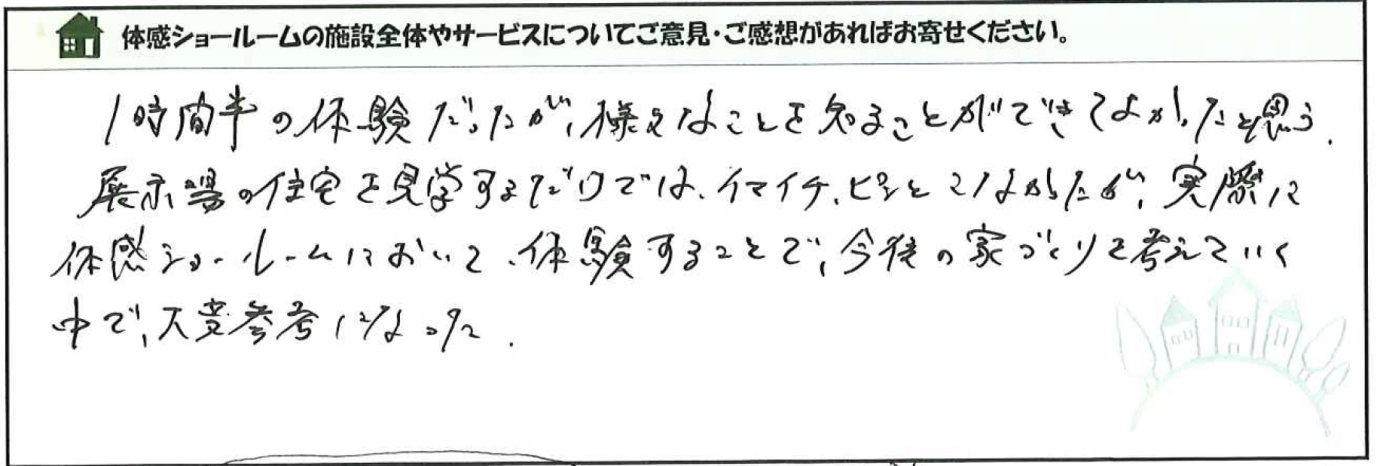 体感ショールームの施設全体やサービスについてご意見・ご感想があればお寄せください。
1時間半の体験だったが、様々なことを知ることができてよかったと思う.
展示場の住宅を見学するだけでは、イマイチ、ピンとこなかったが、実際に
体感ショールームにおいて、体験することで、今後の家づくりを考えていく
中で、大変参考になった.